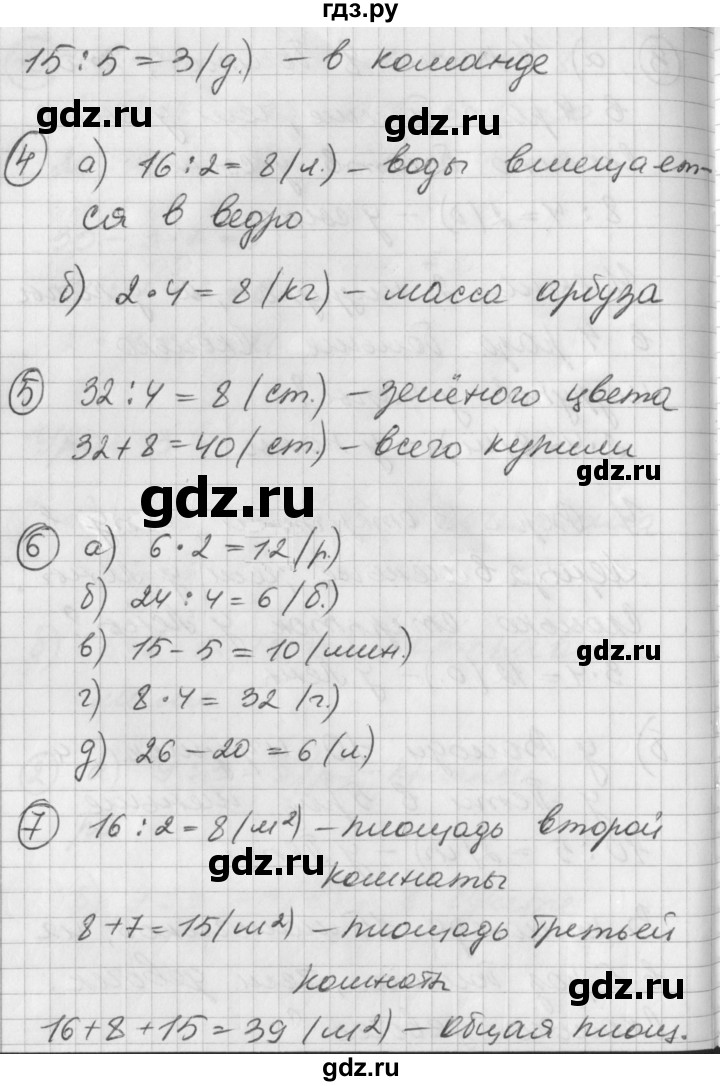 гдз.ру
15 : 5 = 3 (д.) – в команде
gdz.ru
gdz.ru
4 а) 16 : 2 = 8 (л.) – воды вмещает-
ся в ведро
б) 2 · 4 = 8 (кг) – масса арбуза
5 32 : 4 = 8 (ст.) – зелёного цвета
32 + 8 = 40 (ст.) – всего купили
gdz.ru
gdz.ru
6 а) 6 · 2 = 12 (р.)
б) 24 : 4 = 6 (б.)
в) 15 – 5 = 10 (мин.)
gdz.ru
г) 8 · 4 = 32 (г.)
д) 26 – 20 = 6 (л.)
7 16 : 2 = 8 (м²) – площадь второй
gdz.ru
комнаты
8 + 7 = 15 (м²) – площадь третьей
комнаты
gdz.ru
16 + 8 + 15 = 39 (м²) – общая площ.
gdz.ru